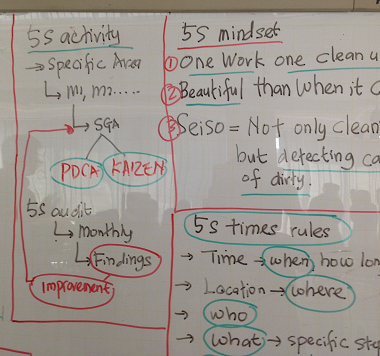 5S activity
→ Specific Area
↳ m1, m2.....
↳ SGA
PDCA KAIZEN
5S audit
↳ Monthly
↳ Findings
improvement
5S mindset
① One Work one clean u
② Beautiful than when it c
③ Seiso = Not only clean
but detecting ca
of dirty.
5S times rules
→ Time → when, how lon
→ Location → where
→ who
→ what → specific ste